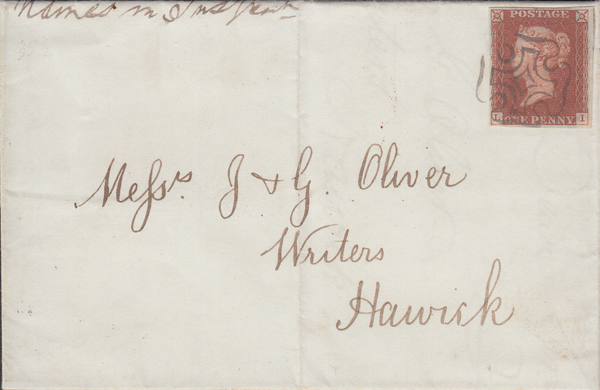 Names in
POSTAGE
L ONE PENNY I
Messrs J & G. Oliver
Writers
Hawick